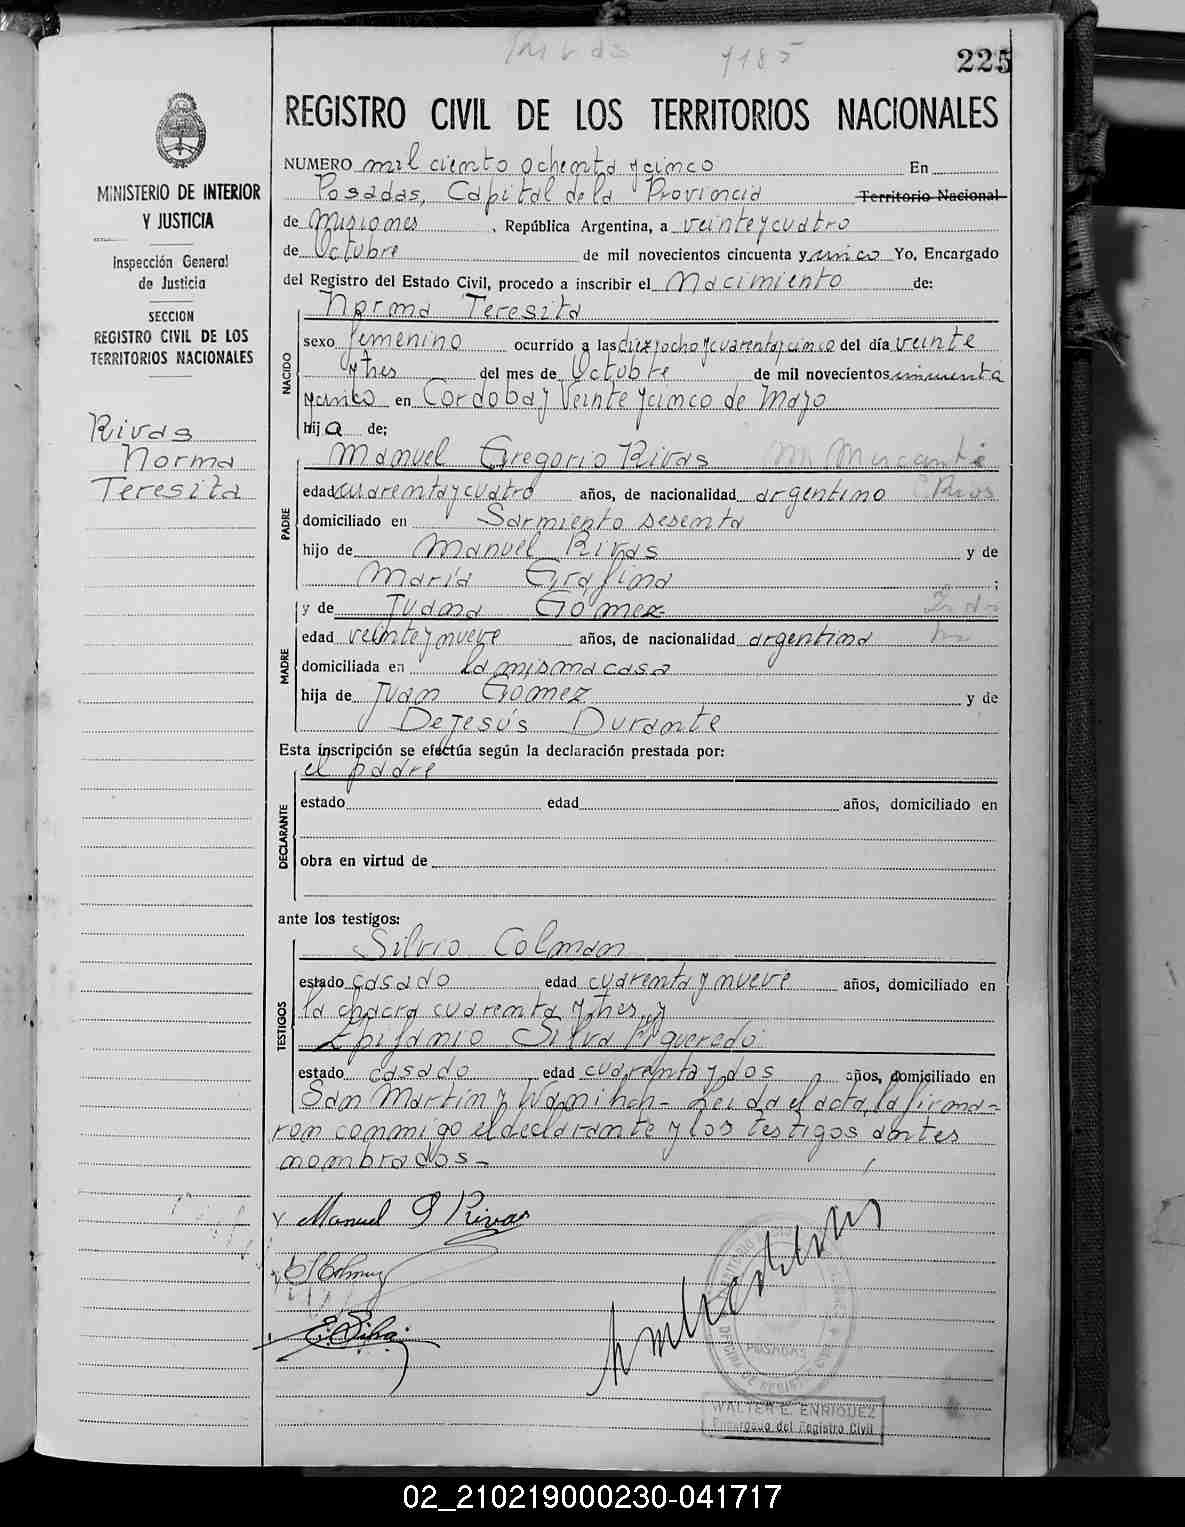 Rivas 1185
225
REGISTRO CIVIL DE LOS TERRITORIOS NACIONALES
MINISTERIO DE INTERIOR
Y JUSTICIA
Inspección General
de Justicia
SECCION
REGISTRO CIVIL DE LOS
TERRITORIOS NACIONALES
Rivas
Norma
Teresita
NUMERO mil ciento ochenta y cinco En
Posadas, Capital de la Provincia Territorio Nacional
de Misiones, República Argentina, a veinte y cuatro
de Octubre de mil novecientos cincuenta y cinco Yo, Encargado
del Registro del Estado Civil, procedo a inscribir el Nacimiento de:
NACIDO
Norma Teresita
sexo femenino ocurrido a las diez y ocho y cuarenta y cinco del día veinte
y tres del mes de Octubre de mil novecientos cincuenta
y cinco en Cordoba y Veinte y cinco de Mayo
hija de;
PADRE
Manuel Gregorio Rivas
edad cuarenta y cuatro años, de nacionalidad argentino
domiciliado en Sarmiento sesenta
hijo de Manuel Rivas y de
María Grafina ;
MADRE
y de Juana Gomez
edad veinte y nueve años, de nacionalidad argentina
domiciliada en la misma casa
hija de Juan Gomez y de
De Jesús Durante
Esta inscripción se efectúa según la declaración prestada por:
DECLARANTE
el padre
estado edad años, domiciliado en
obra en virtud de
ante los testigos:
TESTIGOS
Silvio Colman
estado casado edad cuarenta y nueve años, domiciliado en
la chacra cuarenta y tres, y
Epifanio Silva Figueredo
estado casado edad cuarenta y dos años, domiciliado en
San Martin y - Leida el acta, la firma-
ron conmigo el declarante y los testigos antes
nombrados-
Manuel G Rivas
S Colman
E. Silva
POSADAS
WALTER E. ENRIQUEZ
Encargado del Registro Civil
02_210219000230-041717